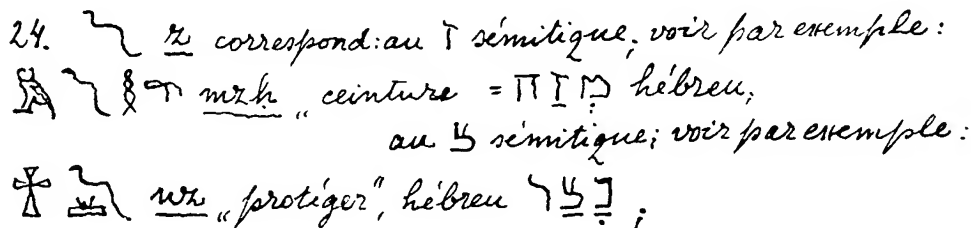 24. 𓆓 z correspond: au ז sémitique; voir par exemple:
𓅓 𓆓 𓎛 mzḥ „ceinture = מזח hébreu;
au צ sémitique; voir par exemple:
𓐩 𓆓 nz „protéger”, hébreu נצר ;